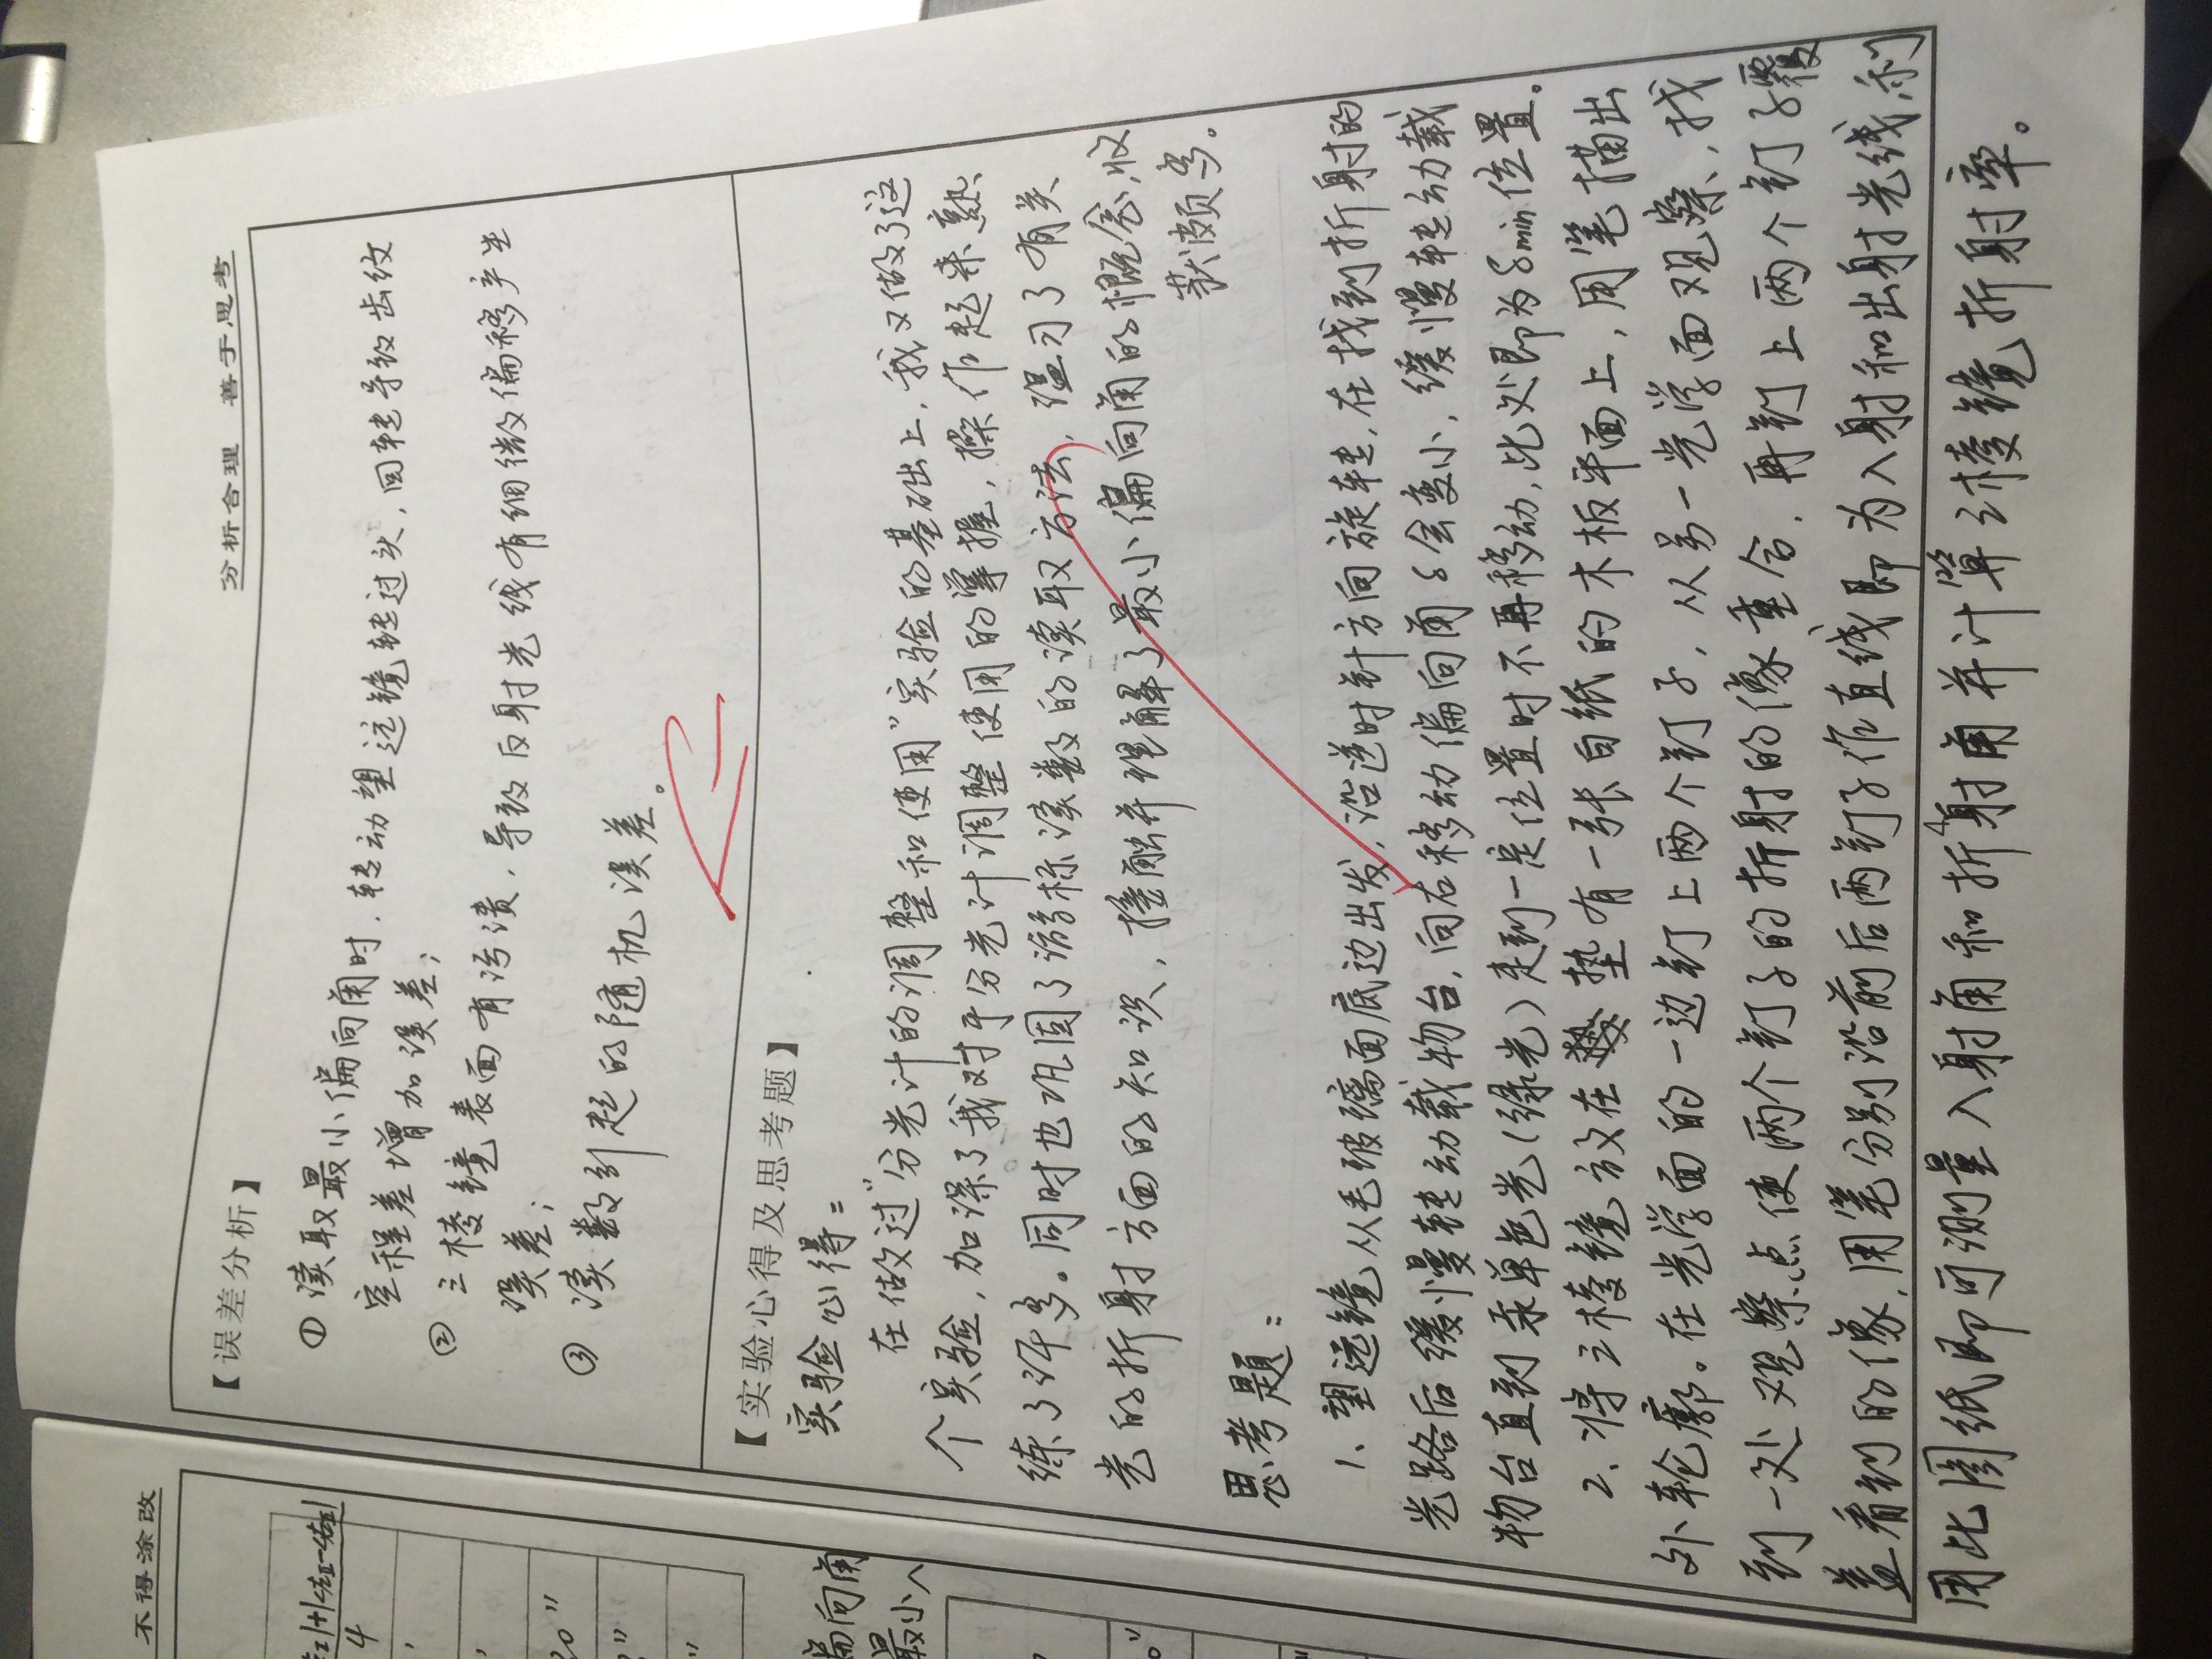 不得涂改
4
30"
偏向角
最小
分析合理 善于思考
【误差分析】
① 读取最小偏向角时，转动望远镜转过头，回转导致齿纹
空程差增加误差；
② 三棱镜表面有污渍，导致反射光线有细微偏移产生
误差；
③ 读数引起的随机误差。
【实验心得及思考题】
实验心得：
在做过"分光计的调整和使用"实验的基础上，我又做了这
个实验，加深了我对于分光计调整使用的掌握，操作起来熟
练了许多。同时也巩固了游标读数的读取方法，温习了有关
光的折射方面的知识，接触并理解了最小偏向角的概念，收
获颇多。
思考题：
1、望远镜从毛玻璃面底边出发，沿逆时针方向旋转，在找到折射的
光路后缓慢转动载物台，向右移动偏向角δ会变小，缓慢转动载
物台直到汞单色光（绿光）走到一定位置时不再移动，此处即为δmin位置。
2、将三棱镜放在垫有一张白纸的木板平面上，用笔描出
外轮廓。在光学面的一边钉上两个钉子，从另一光学面观察，找
到一处观察点使两个钉子的折射的像重合，再钉上两个钉子覆
盖看到的像，用笔分别沿前后两钉子作直线即为入射和出射光线，利
用此图纸即可测量入射角和折射角并计算三棱镜折射率。
4